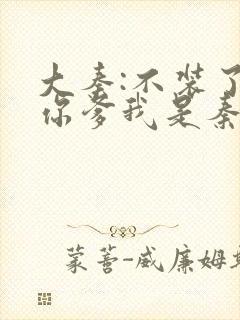 大秦:不装了
你爹我是秦
蒙蒈-威廉姆